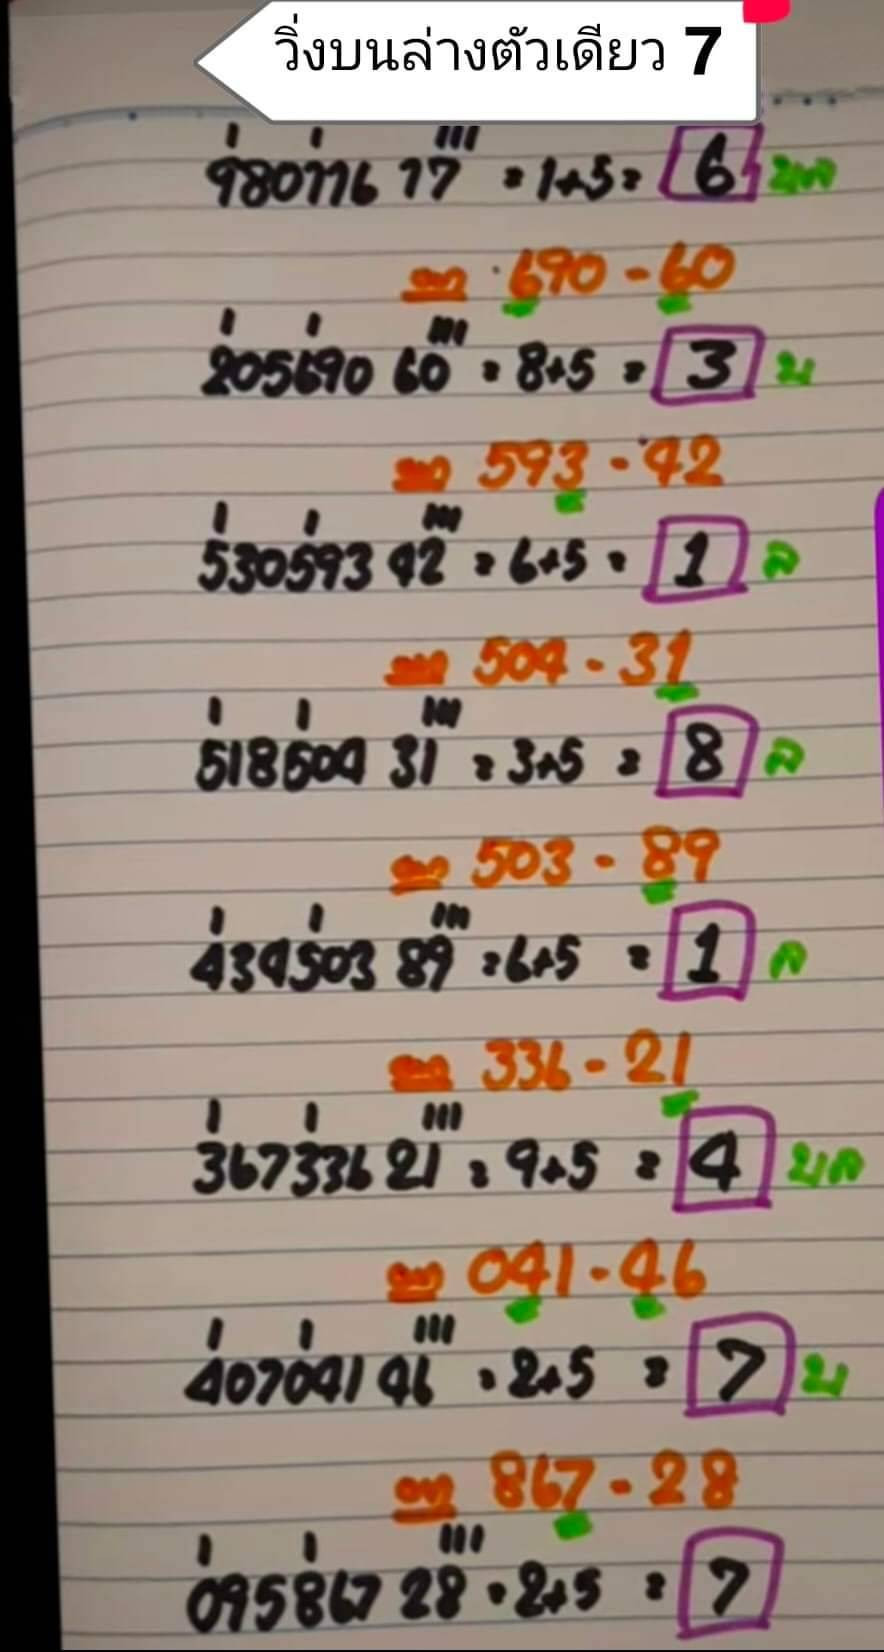 วิ่งบนล่างตัวเดียว 7
980776 17 = 1+5 = 6 บล
ออก 690 - 60
205690 60 = 8+5 = 3 บ
ออก 593 - 42
530593 42 = 6+5 = 1 ล
ออก 504 - 31
518504 31 = 3+5 = 8 ล
ออก 503 - 89
434503 89 = 6+5 = 1 ล
ออก 336 - 21
367336 21 = 9+5 = 4 บล
ออก 041 - 46
407041 46 = 2+5 = 7 บ
ออก 867 - 28
095867 28 = 2+5 = 7